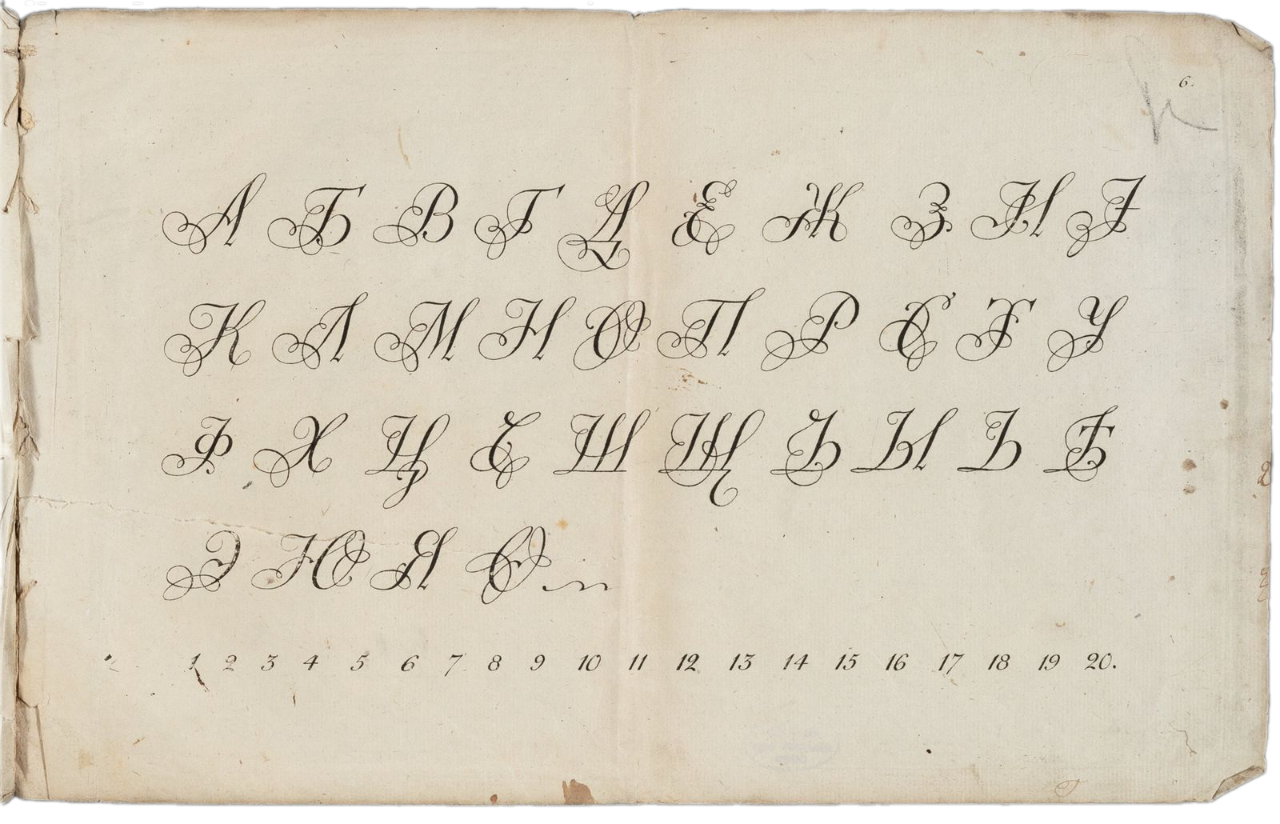 6.
А Б В Г Д Е Ж З И І
К Л М Н О П Р С Т У
Ф Х Ц Ч Ш Щ Ъ Ы Ь Ѣ
Э Ю Я Ѳ
1 2 3 4 5 6 7 8 9 10 11 12 13 14 15 16 17 18 19 20.